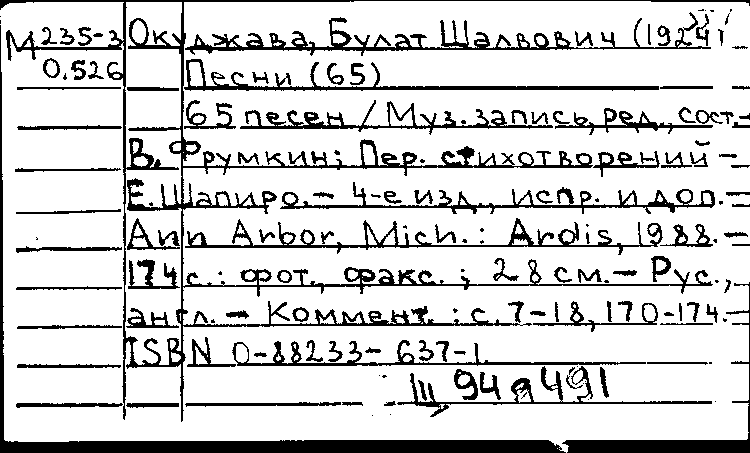 М 235-3 Окуджава, Булат Шалвович (1924)
0.526 Песни (65)
65 песен / Муз. запись, ред., сост.-
В. Фрумкин; Пер. стихотворений -
Е. Шапиро. - 4-е изд., испр. и доп. -
Ann Arbor, Mich.: Ardis, 1988. -
174 с.: фот., факс. ; 28 см. - Рус.,
англ. - Коммент. : с. 7-18, 170-174. -
ISBN 0-88233-637-1.
Щ 94 я 491